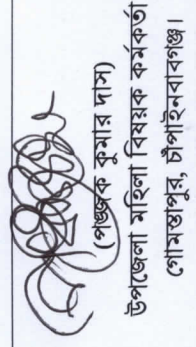 (পঙ্কজ কুমার দাস)
উপজেলা মহিলা বিষয়ক কর্মকর্তা
গোমস্তাপুর, চাঁপাইনবাবগঞ্জ।